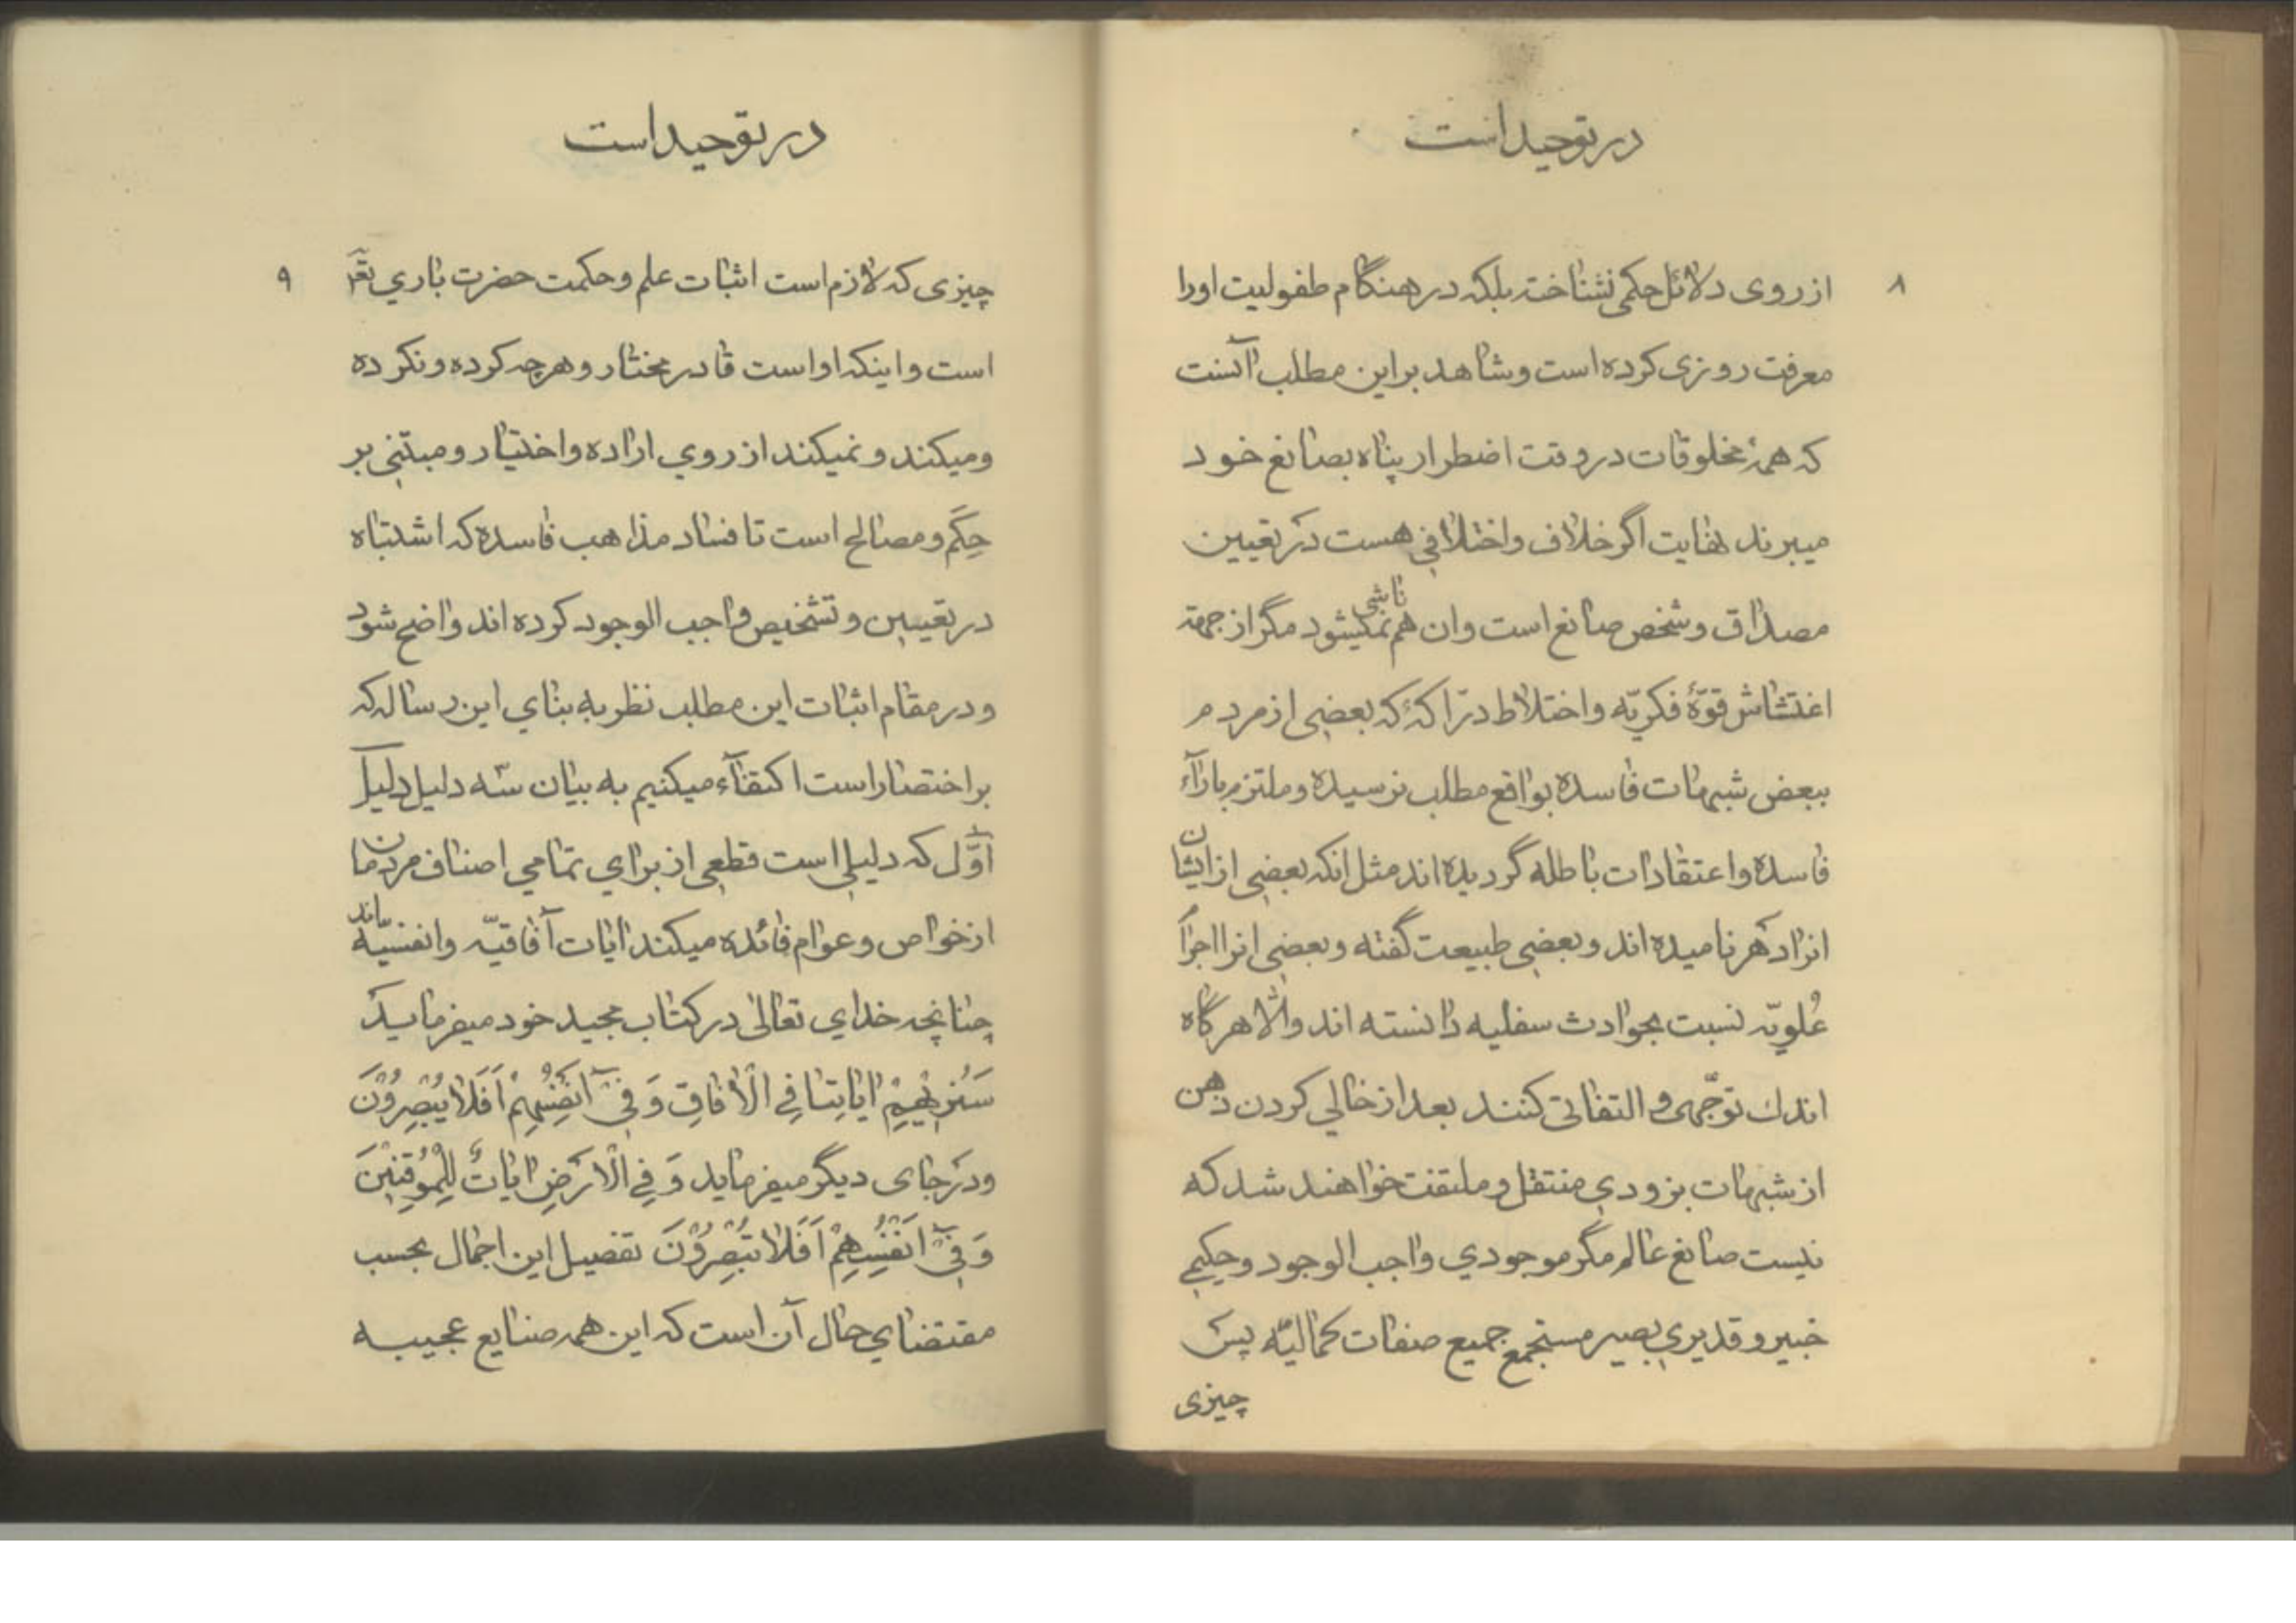 در توحید است
۸
از روی دلائل حکمی نشناخته بلکه در هنگام طفولیت اورا
معرفت روزی کرده است و شاهد بر این مطلب آنست
که همهٔ مخلوقات در وقت اضطرار پناه بصانع خود
میبرند نهایت اگر خلاف و اختلافی هست در تعیین
مصداق و شخص صانع است وان هم ناشی نمیشود مگر از جهة
اغتشاش قوّهٔ فکریّه و اختلاط درّاکه که بعضی از مردم
ببعض شبهات فاسده بواقع مطلب نرسیده و ملتزم باراآء
فاسده و اعتقادات باطله گردیده اند مثل انکه بعضی از ایشان
انرا دهر نامیده اند و بعضی طبیعت گفته و بعضی انرا اجرام
عُلویّه نسبت بحوادث سفلیه دانسته اند والّا هرگاه
اندك توجّهی و التفاتی کنند بعد از خالی کردن ذهن
از شبهات بزودی منتقل و ملتفت خواهند شد که
نیست صانع عالم مگر موجودی واجب الوجود و حکیمی
خبیر و قدیری بصیر مستجمع جمیع صفات کمالیّه پس
چیزی
در توحید است
۹
چیزی که لازم است اثبات علم و حکمت حضرت باری تعـ
است و اینکه اواست قادر مختار و هرچه کرده و نکرده
و میکند و نمیکند از روی اراده و اختیار و مبتنی بر
حِکَم و مصالح است تا فساد مذاهب فاسده که اشتباه
در تعیین و تشخیص واجب الوجود کرده اند واضح شود
و در مقام اثبات این مطلب نظر به بنای این رساله که
بر اختصار است اکتفآء میکنیم به بیان سه دلیل دلیل
اوّل که دلیلی است قطعی از برای تمامی اصناف مردمان
از خواص و عوام فائده میکند ایات آفاقیّه و انفسیّه اند
چنانچه خدای تعالی در کتاب مجید خود میفرماید
سَنُریهِمْ ایاتِنا فِی الْافاقِ وَ فی اَنْفُسِهِمْ اَفَلا یُبْصِرُوْنَ
و در جای دیگر میفرماید وَ فِی الْارَضِ ایاتٌ لِلْمُوْقِنیْنَ
وَ فی اَنْفُسِهِمْ اَفَلا تُبْصِرُوْنَ تفصیل این اجمال بحسب
مقتضای حال آن است که این همه صنایع عجیبه